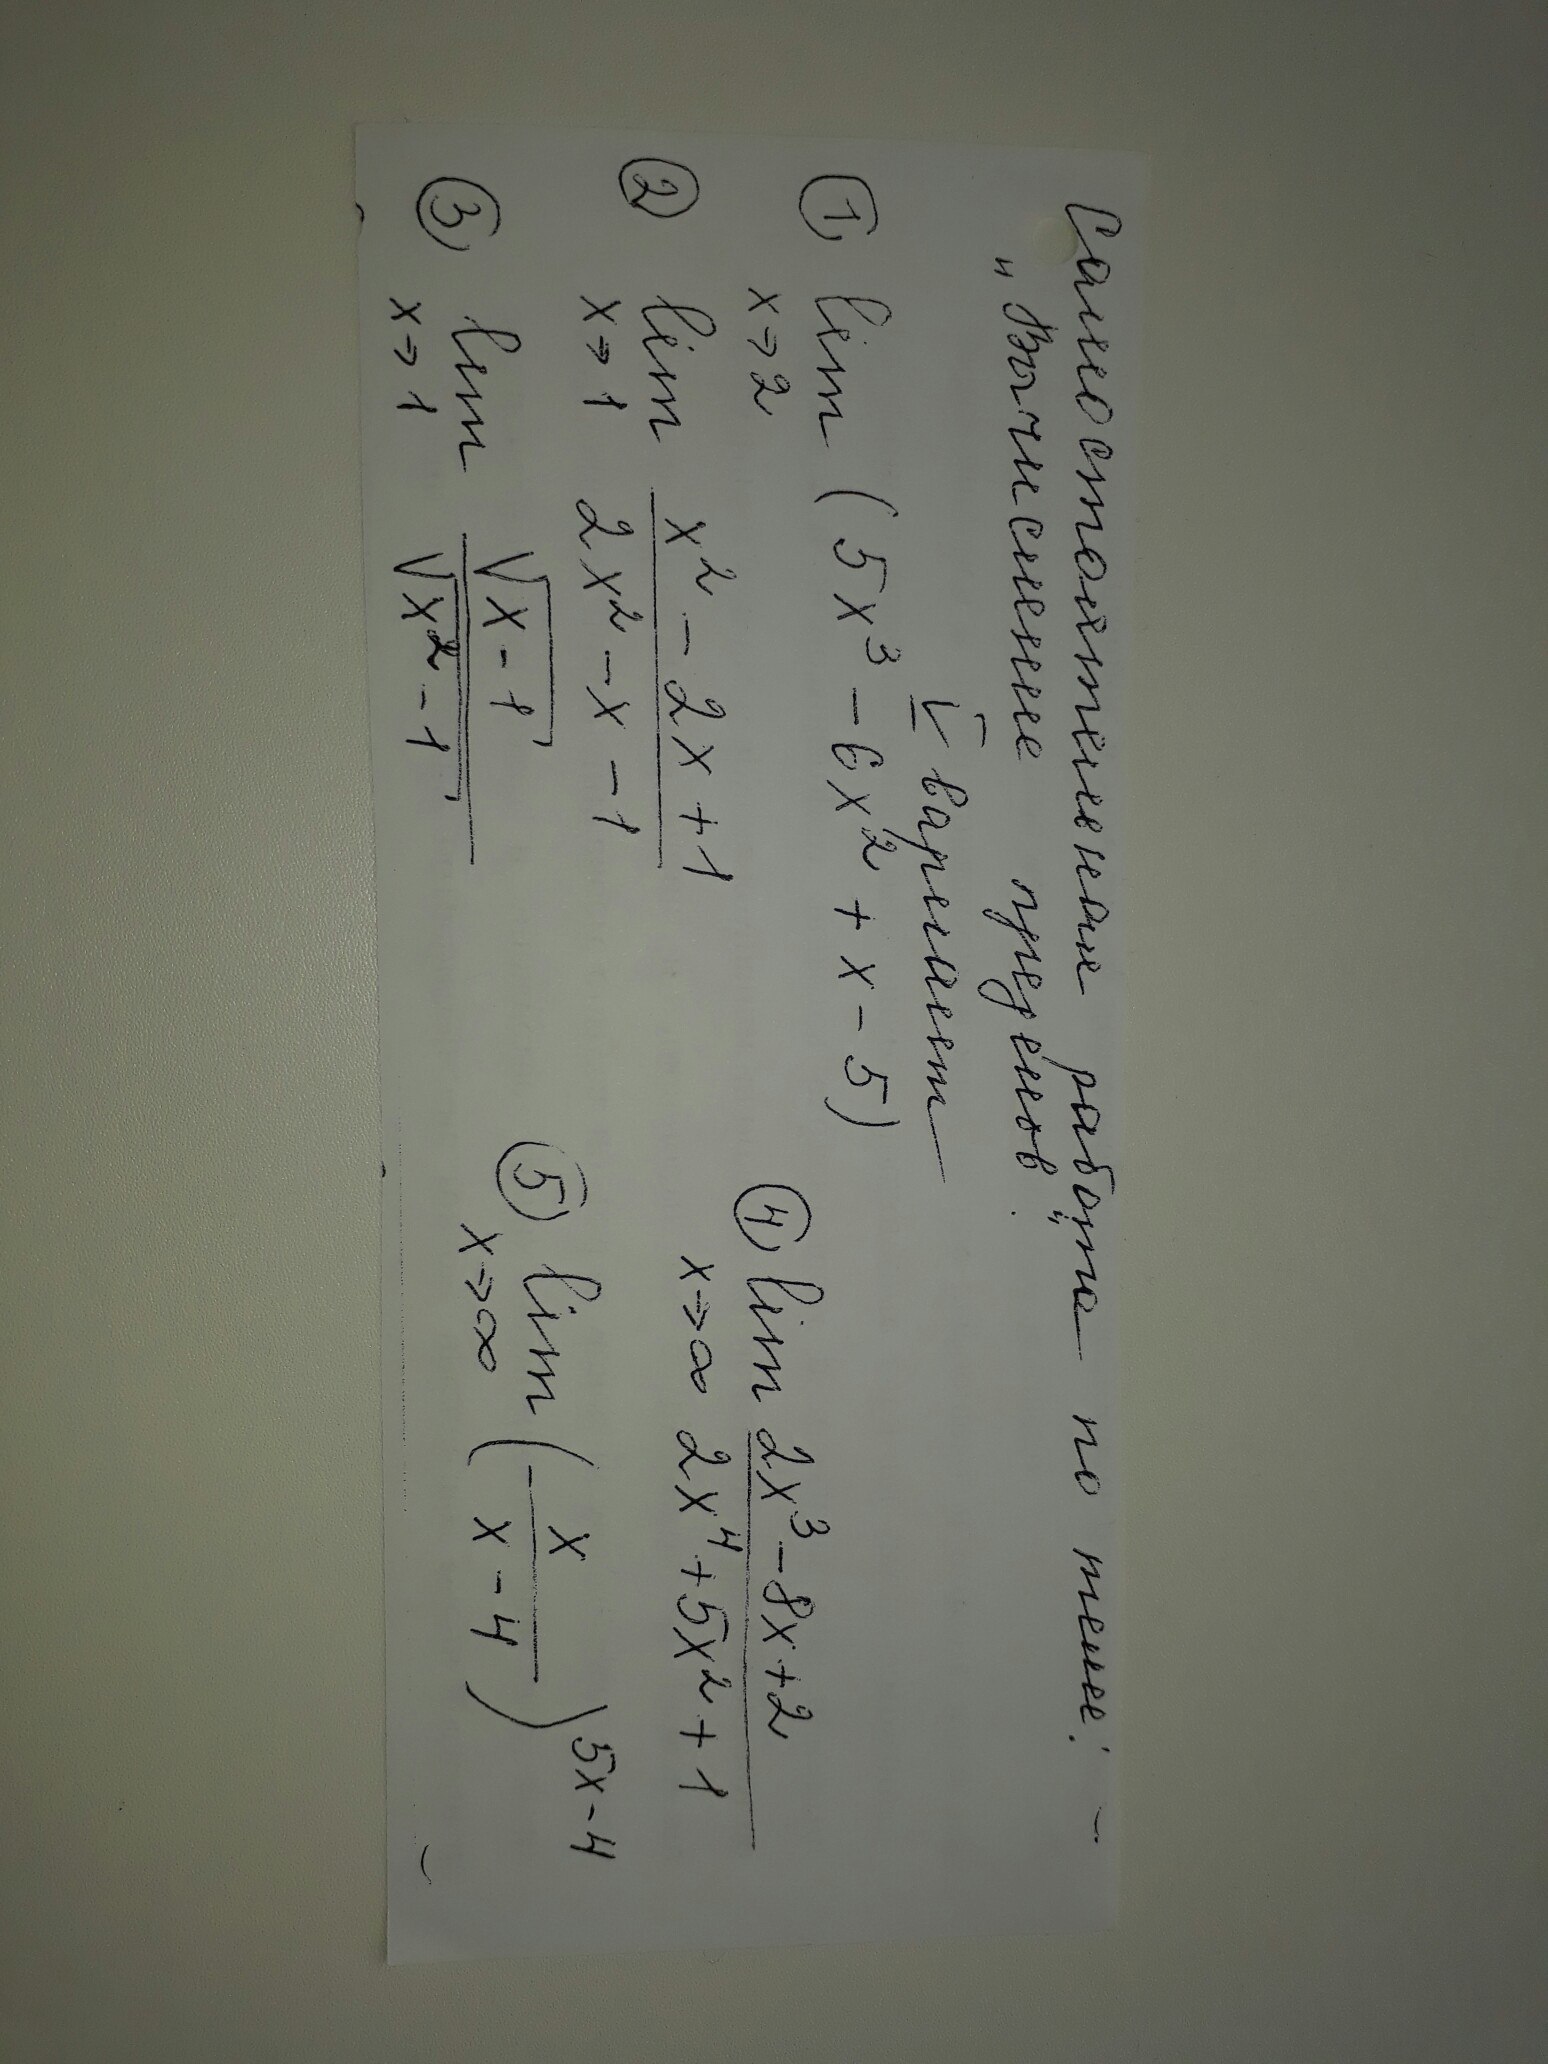 Самостоятельная работа по теме:
„Вычисление пределов“.
V вариант
① lim (5x³ - 6x² + x - 5)
x→2
② lim (x² - 2x + 1)/(2x² - x - 1)
x→1
③ lim √(x - 1)/√(x² - 1)
x→1
④ lim (2x³ - 8x + 2)/(2x⁴ + 5x² + 1)
x→∞
⑤ lim (x/(x - 4))^(5x - 4)
x→∞